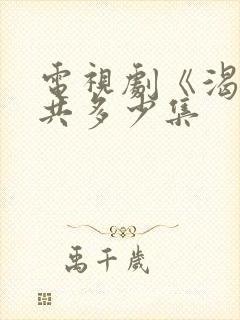 電視劇《渴
共多少集
禹千歲